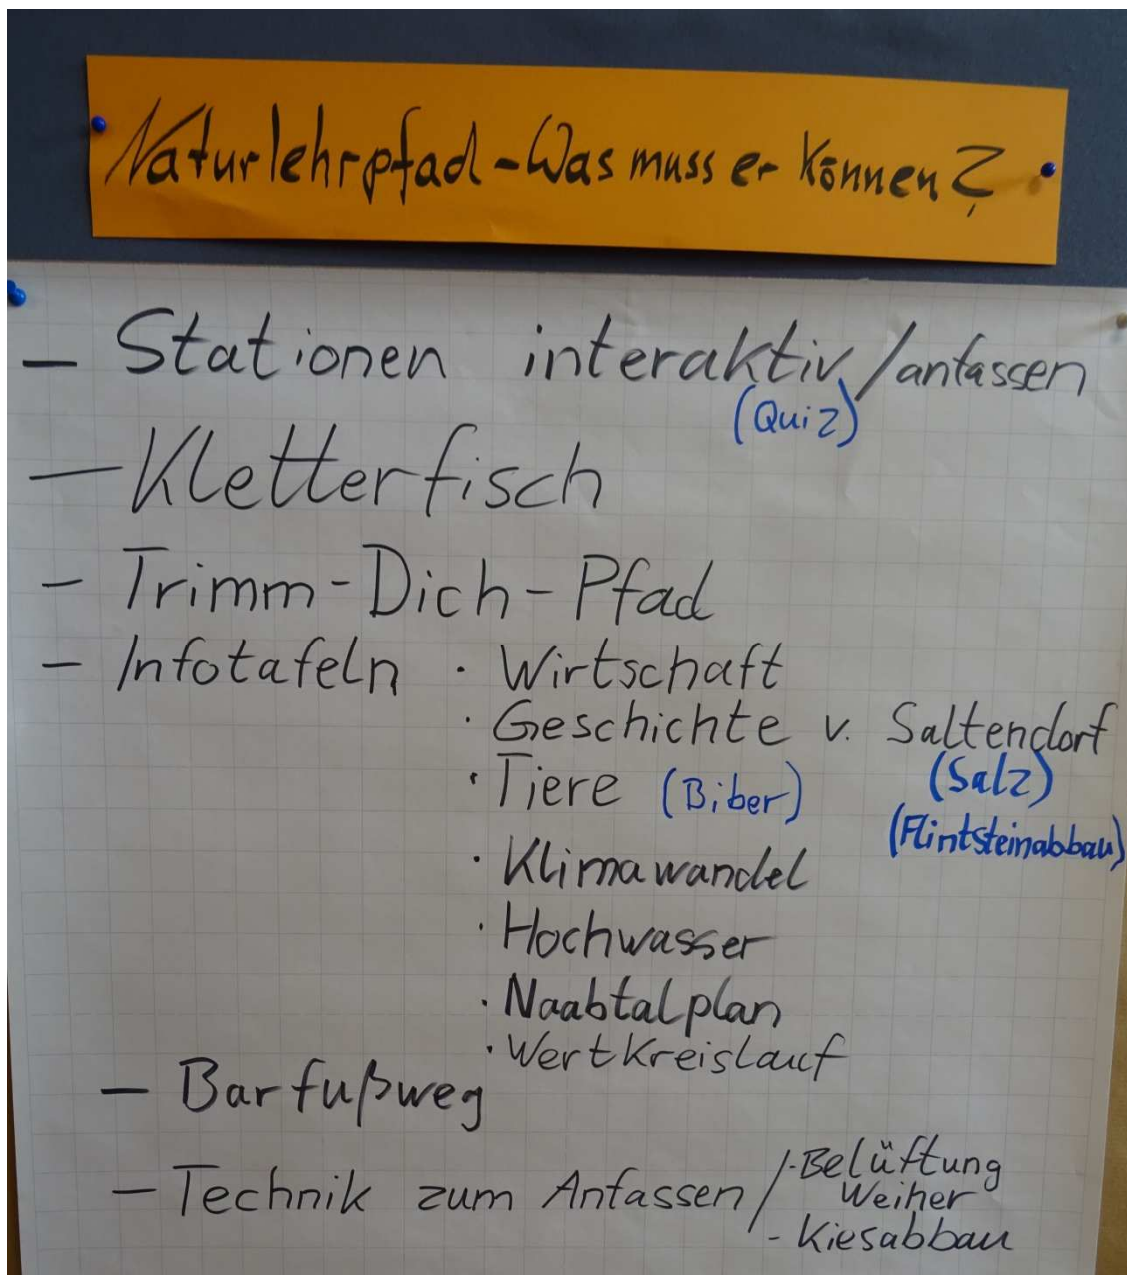 Naturlehrpfad - Was muss er können?
- Stationen interaktiv / anfassen
(Quiz)
- Kletterfisch
- Trimm-Dich-Pfad
- Infotafeln · Wirtschaft
· Geschichte v. Saltendorf
(Salz)
(Flintsteinabbau)
· Tiere (Biber)
· Klimawandel
· Hochwasser
· Naabtalplan
· Wertkreislauf
- Barfußweg
- Technik zum Anfassen / · Belüftung
Weiher
- Kiesabbau